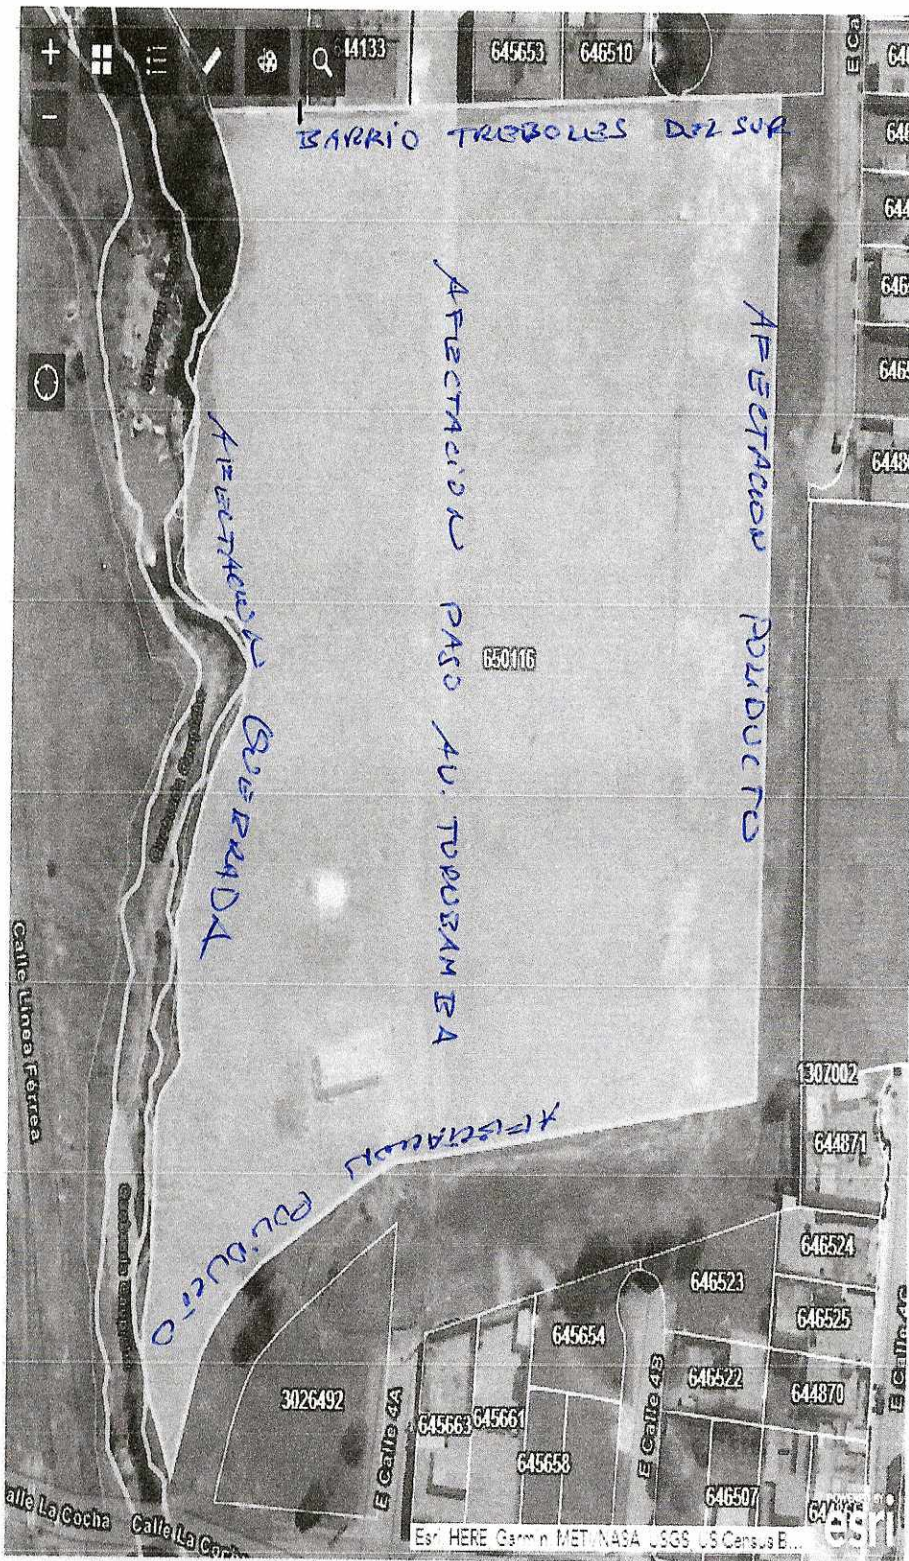 44133
645653
646510
E Ca
BARRIO TREBOLES DEL SUR
AFECTACION POLIDUCTO
AFECTACION PASO AV. TURUBAMBA
AFECTACION QUEBRADA
650116
Calle Línea Férrea
AFECTACION POLIDUCTO
1307002
644871
646524
646523
646525
645654
646522
644870
3026492
645663
645661
645658
646507
E Calle 4A
E Calle 4B
E Calle 4C
alle La Cocha
Calle La Coch
Esri, HERE, Garmin, METI/NASA, USGS, US Census B...
esri